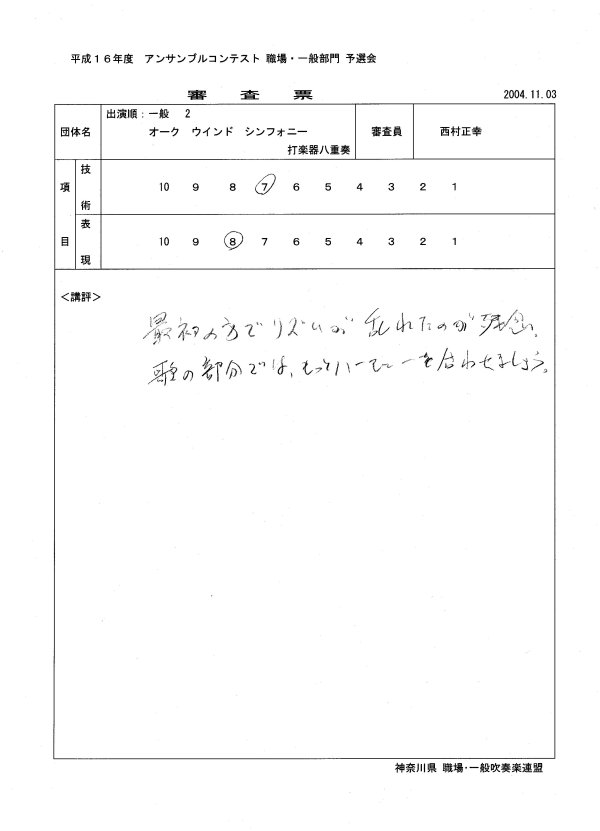 平成16年度 アンサンブルコンテスト 職場・一般部門 予選会
審査票 2004.11.03
団体名 出演順:一般 2
オーク ウインド シンフォニー
打楽器八重奏
審査員 西村正幸
項目
技術 10 9 8 7 6 5 4 3 2 1
表現 10 9 8 7 6 5 4 3 2 1
<講評>
最初の方でリズムが乱れたのが残念。
歌の部分では、もっとハーモニーを合わせましょう。
神奈川県 職場・一般吹奏楽連盟